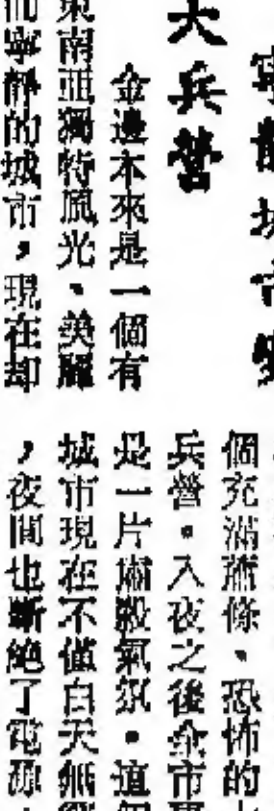 寧靜城市變
大兵營
金邊本來是一個有
東南亞獨特風光、美麗
而寧靜的城市，現在却
個充滿蕭條、恐怖的
兵營。入夜之後全市
是一片肅殺氣氛。這個
城市現在不僅白天無
，夜間也斷絕了電源